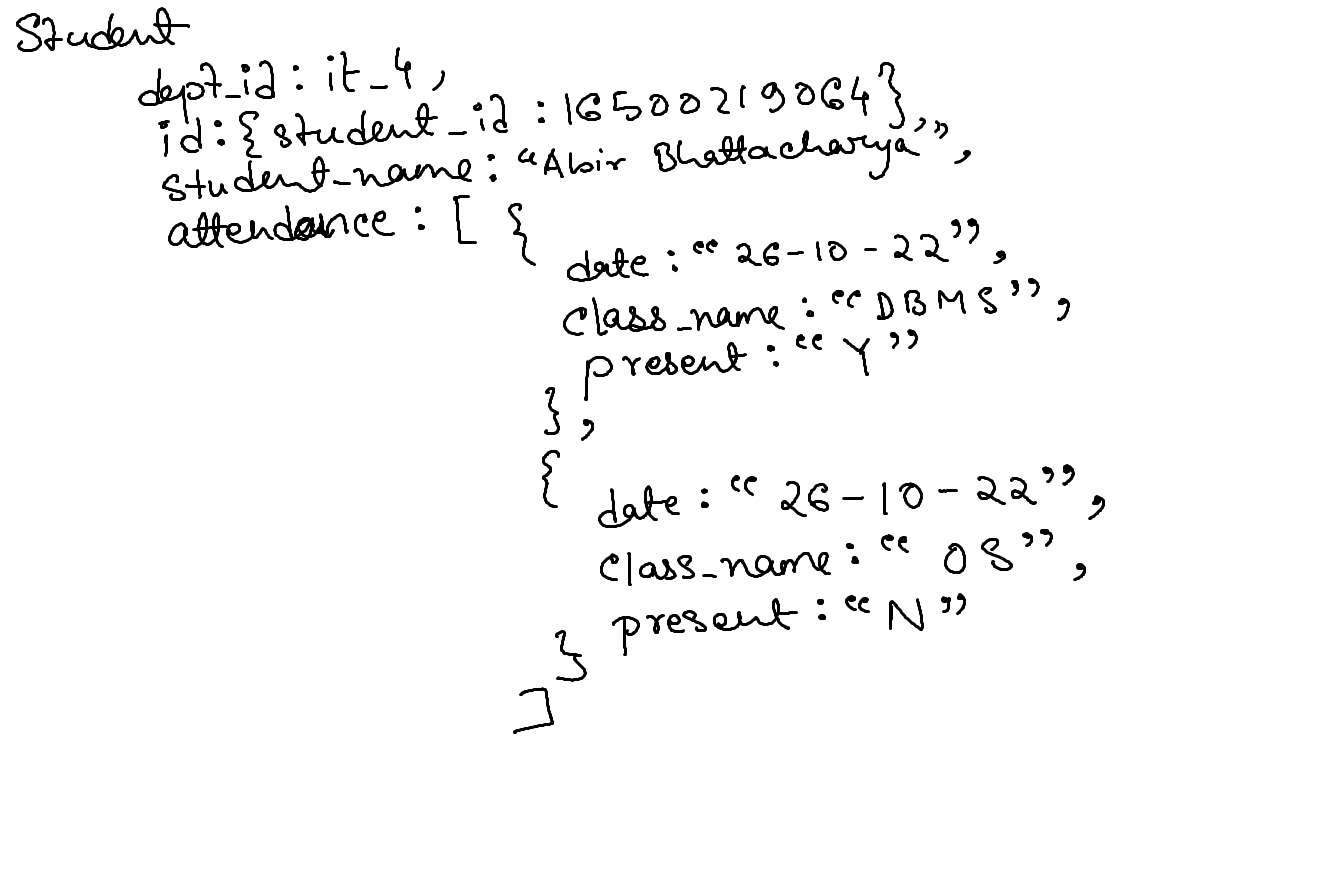 Student
dept_id : it_4,
id : { student_id : 16500219064},
student_name : "Abir Bhattacharya",
attendance : [ {
date : "26-10-22",
class_name : "DBMS",
present : "Y"
},
{
date : "26-10-22",
class_name : "OS",
present : "N"
}
]